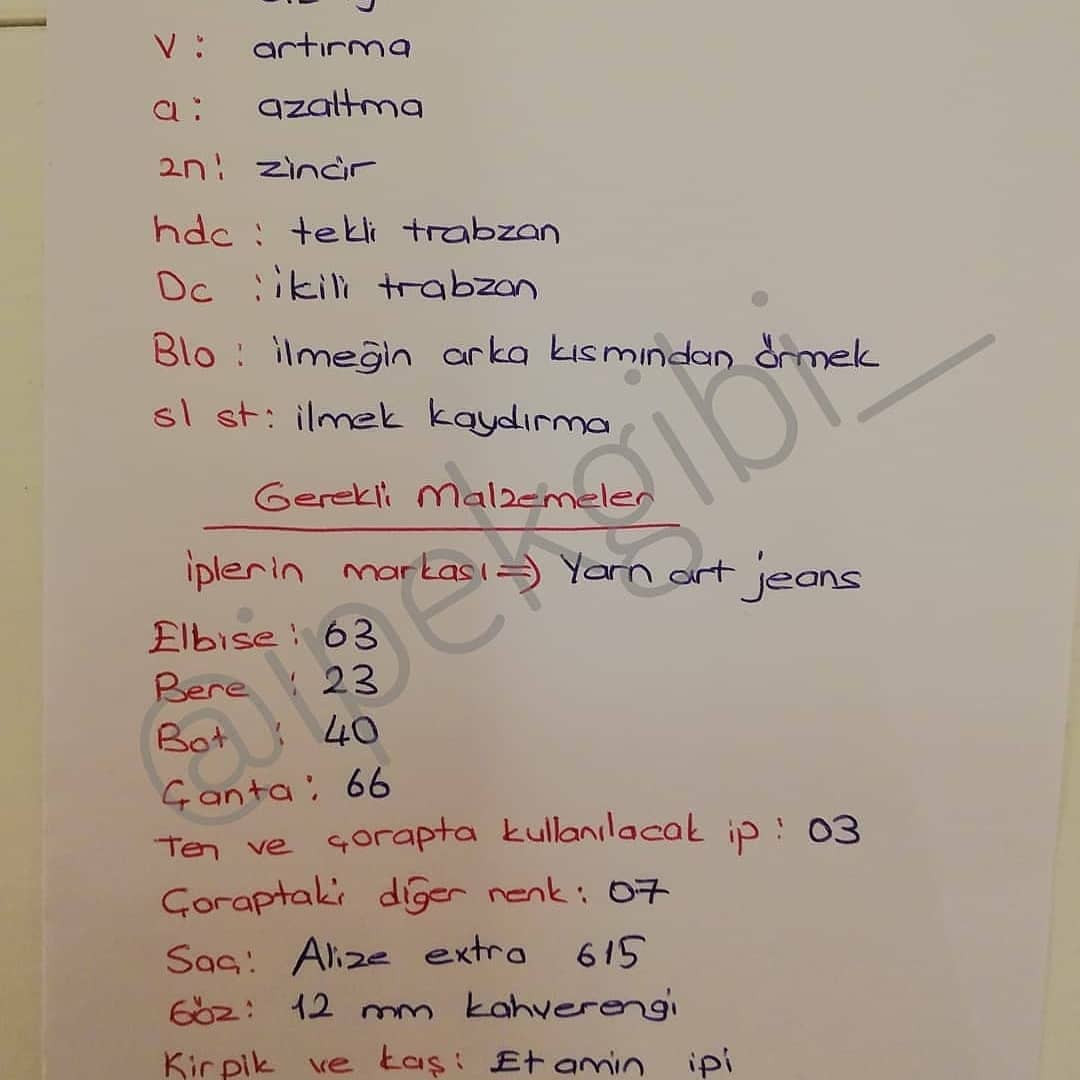 v: artırma
a: azaltma
zn: zincir
hdc: tekli trabzan
Dc: ikili trabzan
Blo: ilmeğin arka kısmından örmek
sl st: ilmek kaydırma
Gerekli Malzemeler
iplerin markası => Yarn art jeans
Elbise: 63
Bere: 23
Bot: 40
Çanta: 66
Ten ve çorapta kullanılacak ip: 03
Çoraptaki diğer renk: 07
Saç: Alize extra 615
Göz: 12 mm kahverengi
Kirpik ve kaş: Etamin ipi
@ipekgibi_